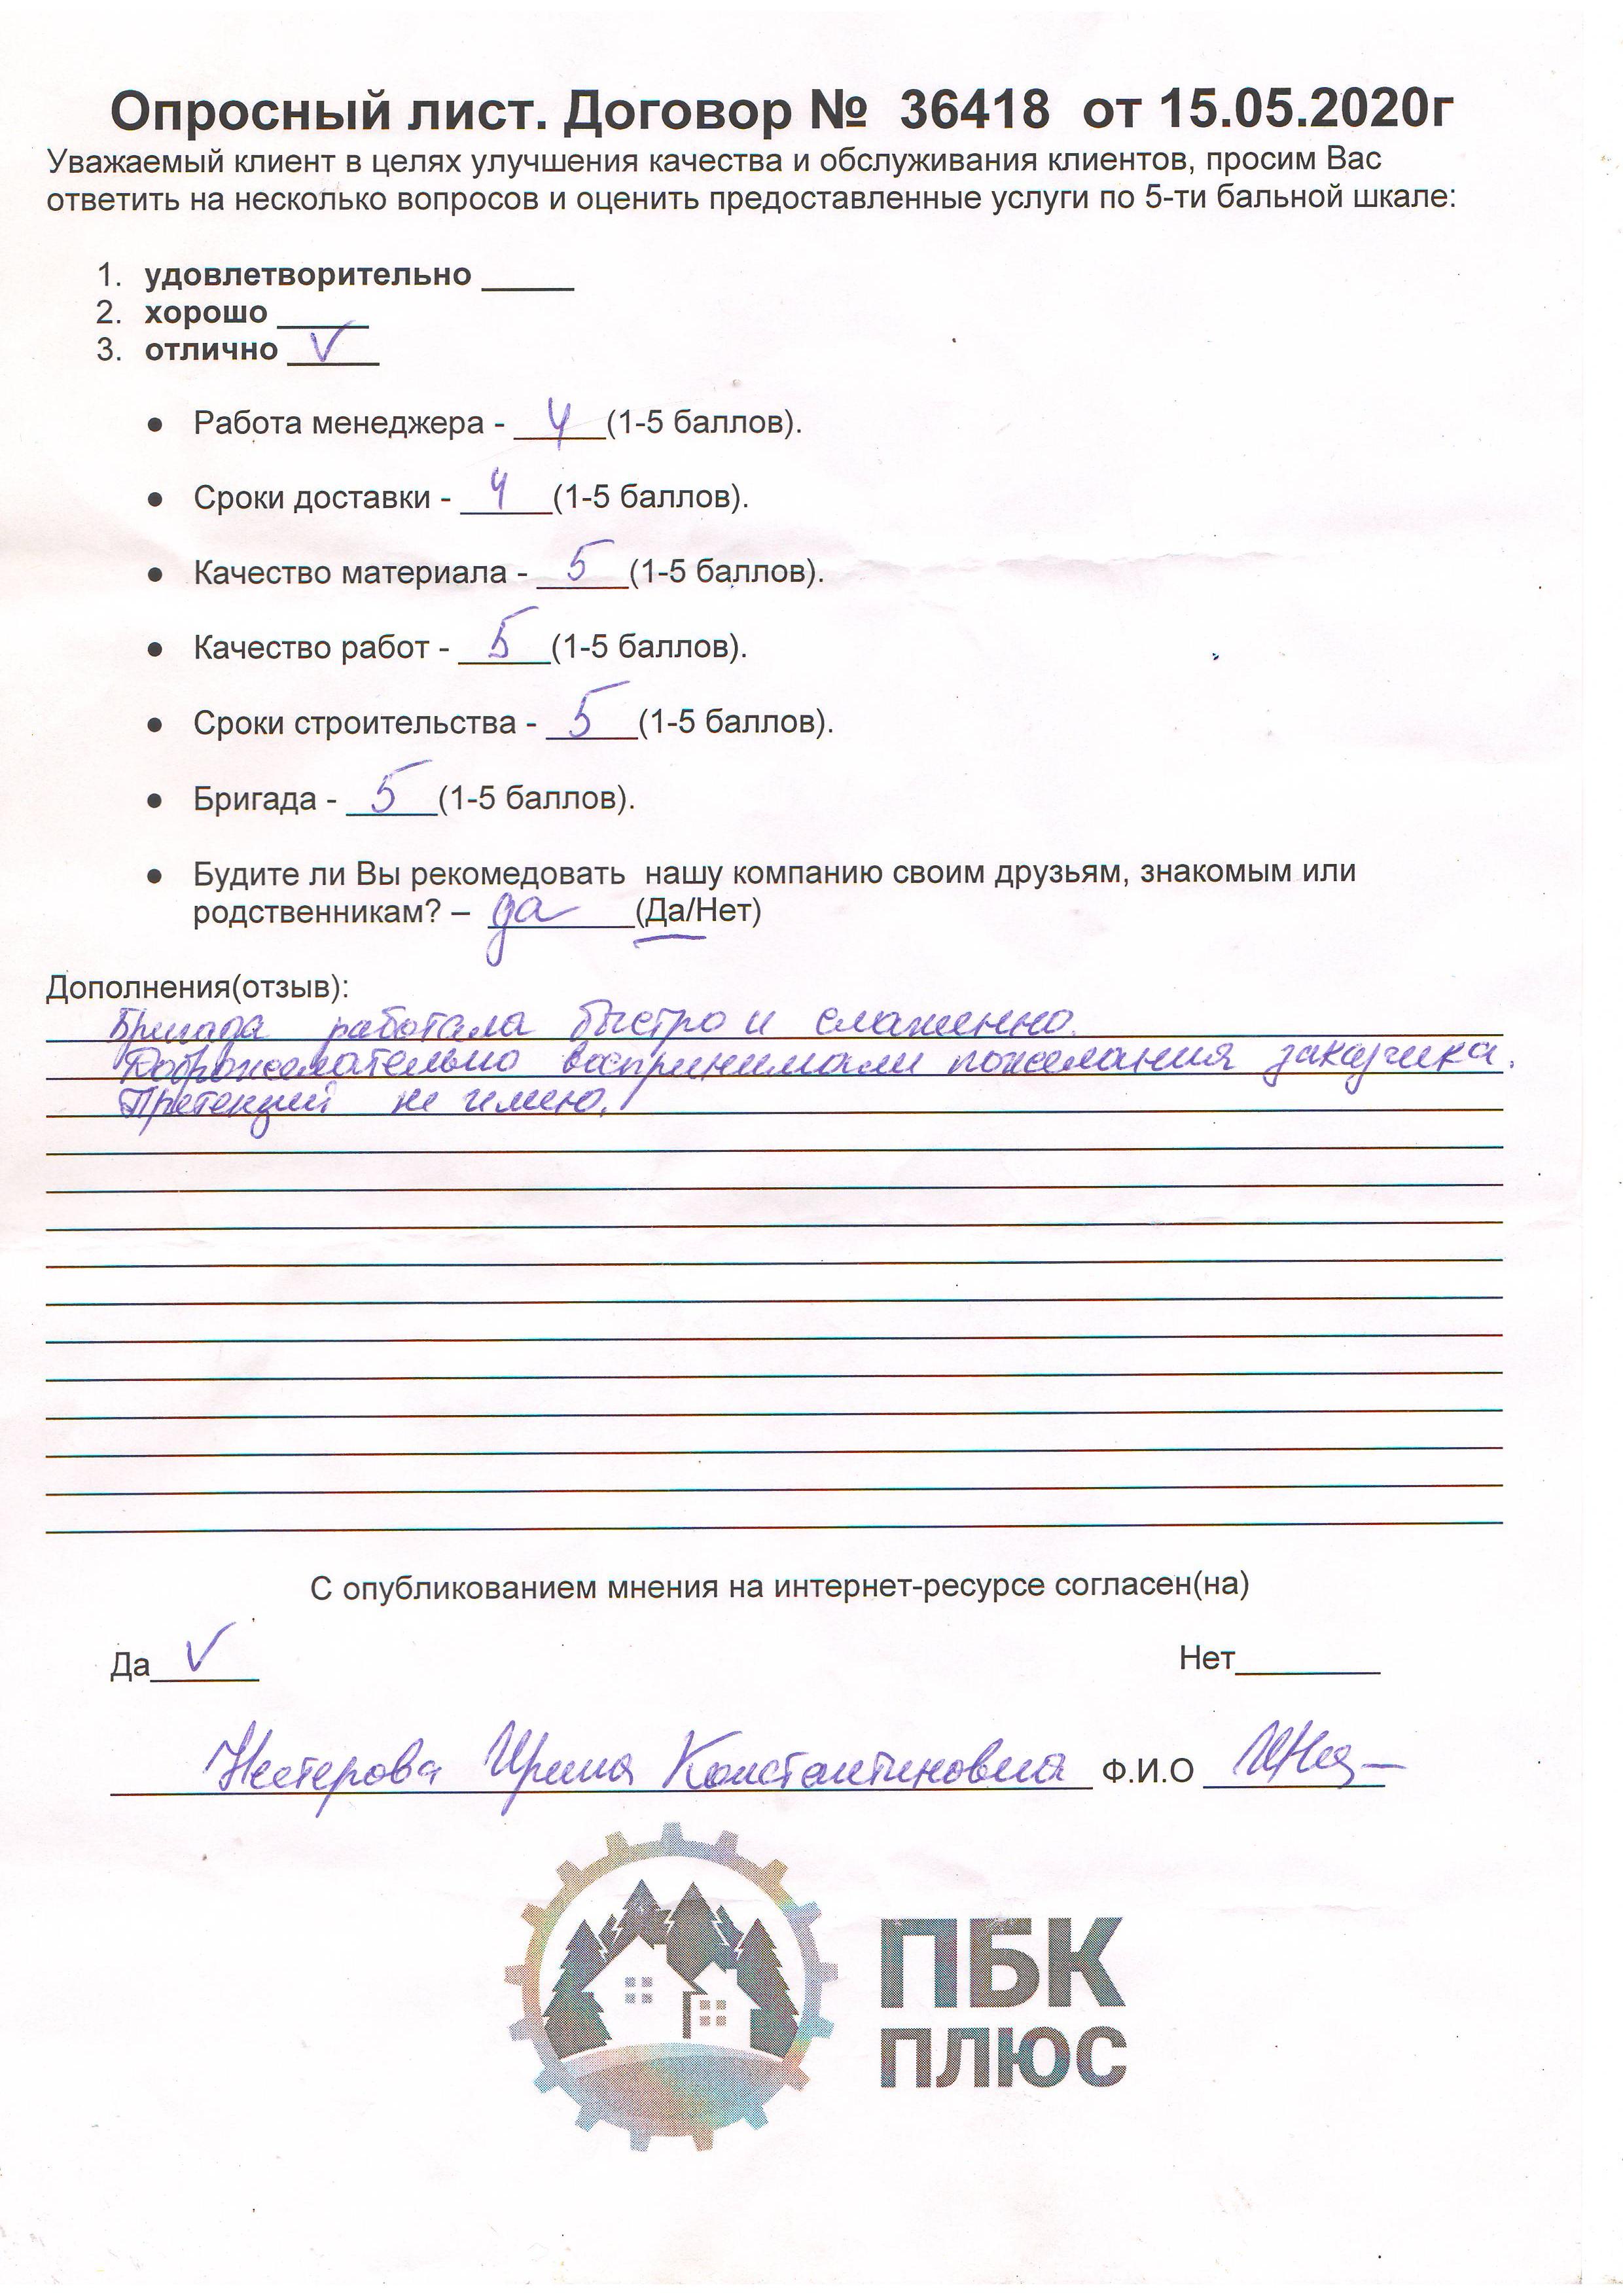 Опросный лист. Договор № 36418 от 15.05.2020г
Уважаемый клиент в целях улучшения качества и обслуживания клиентов, просим Вас
ответить на несколько вопросов и оценить предоставленные услуги по 5-ти бальной шкале:
1. удовлетворительно _____
2. хорошо _____
3. отлично __V__
● Работа менеджера - 4 (1-5 баллов).
● Сроки доставки - 4 (1-5 баллов).
● Качество материала - 5 (1-5 баллов).
● Качество работ - 5 (1-5 баллов).
● Сроки строительства - 5 (1-5 баллов).
● Бригада - 5 (1-5 баллов).
● Будите ли Вы рекомедовать нашу компанию своим друзьям, знакомым или
родственникам? – да (Да/Нет)
Дополнения(отзыв):
Бригада работала быстро и слаженно.
Доброжелательно воспринимали пожелания заказчика.
Претензий не имею.
С опубликованием мнения на интернет-ресурсе согласен(на)
Да V Нет
Нестерова Ирина Константиновна Ф.И.О
ПБК
ПЛЮС